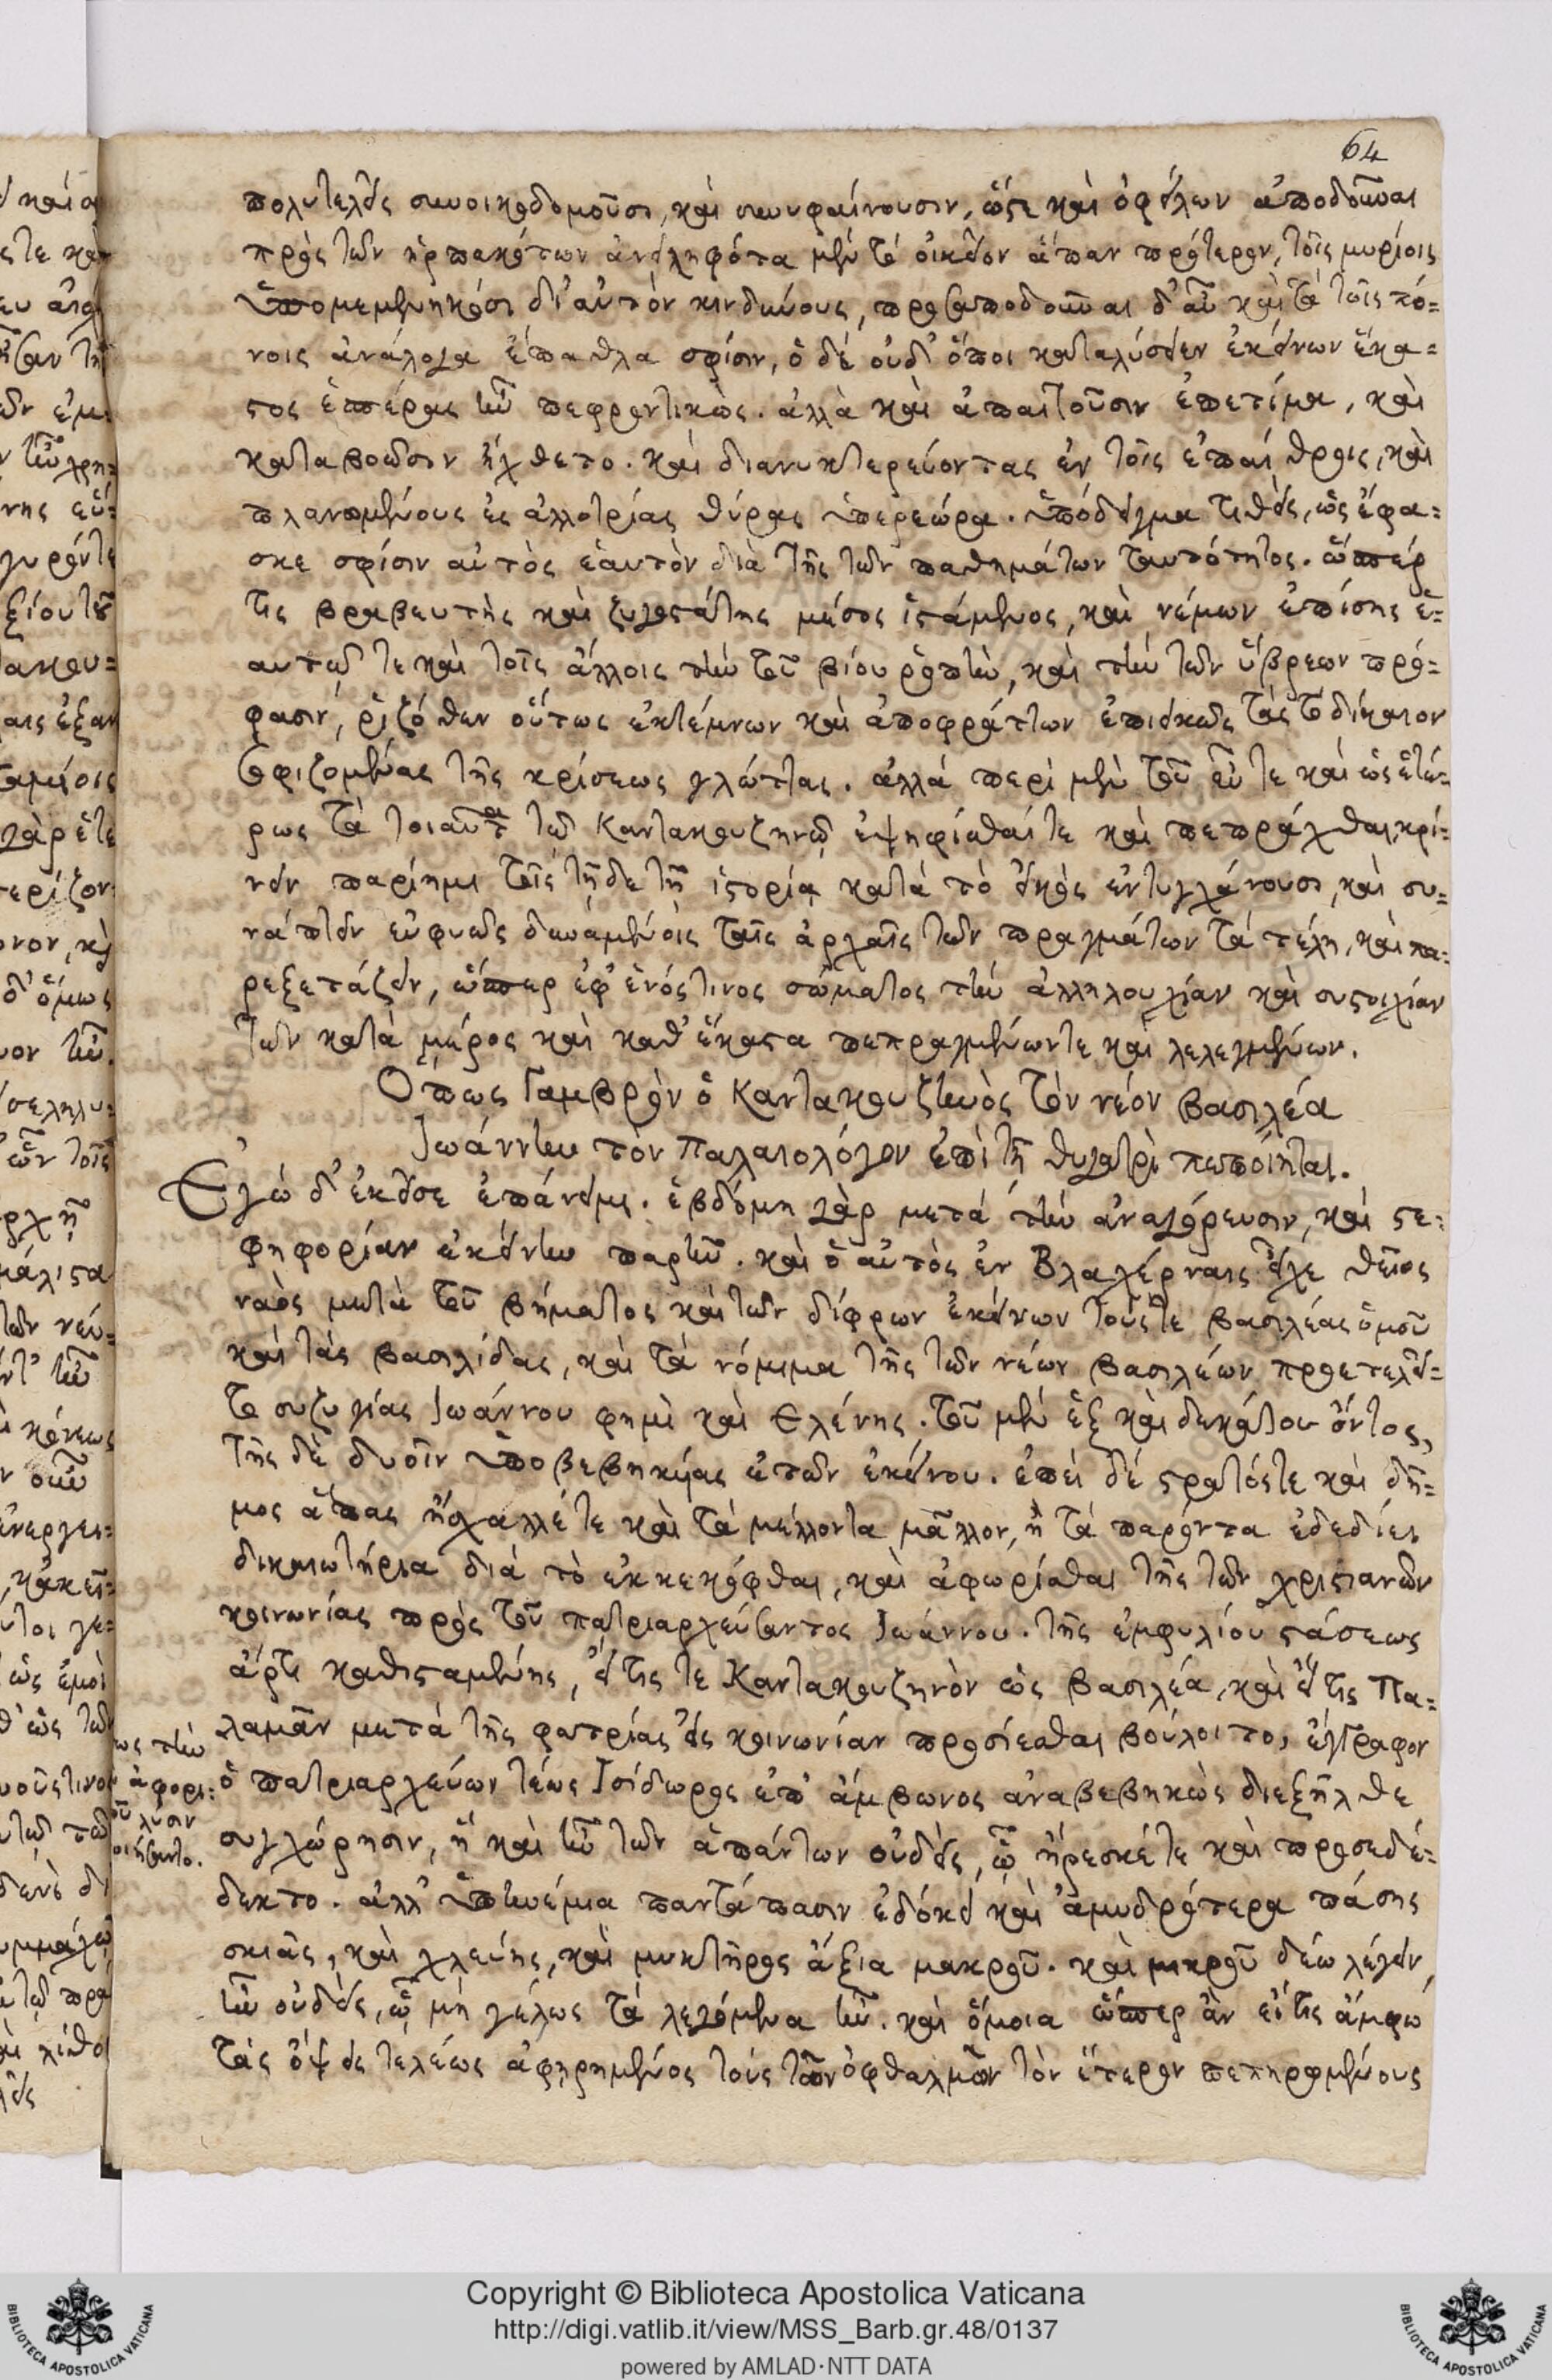 64
πολυτελεῖς συνοικοδομοῦσι, καὶ συνυφαίνουσιν, ὥστε καὶ ὀφείλων ἀποδοῦναι
πρὸς τῶν ἡρπακότων ἀνειληφότα μὲν τὸ οἰκεῖον ἅπαν πρότερον, τοῖς μυρίοις
ὑπομεμενηκόσι δι' αὐτὸν κινδύνους, προσαποδοῦναι δ' αὖ καὶ τὰ τοῖς πό=
νοις ἀνάλογα ἔπαθλα σφίσιν, ὁ δὲ οὐδ' ὅποι καταλύσειεν ἐκείνων ἕκα=
στος ἑσπέρας ἦν πεφροντικώς. ἀλλὰ καὶ ἀπαιτοῦσιν ἐπετίμα, καὶ
καταβοῶσιν ἤχθετο. καὶ διανυκτερεύοντας ἐν τοῖς ὑπαίθροις, καὶ
πλανωμένους ἐς ἀλλοτρίας θύρας ὑπερεώρα. ὑπόδειγμα τιθεὶς, ὡς ἔφα=
σκε σφίσιν αὐτὸς ἑαυτὸν διὰ τῆς τῶν παθημάτων ταυτότητος. ὥσπέρ
τις βραβευτὴς καὶ ζυγοστάτης μέσος ἱστάμενος, καὶ νέμων ἐπίσης ἑ=
αυτῷ τε καὶ τοῖς ἄλλοις τὴν τοῦ βίου ῥοπὴν, καὶ τὴν τῶν ὕβρεων πρό=
φασιν, ῥιζόθεν οὕτως ἐκτέμνων καὶ ἀποφράττων ἐπιεικῶς τὰς τὸ δίκαιον
σοφιζομένας τῆς κρίσεως γλώττας. ἀλλὰ περὶ μὲν τοῦ εὖ τε καὶ ὡς ἑτέ=
ρως τὰ τοιαῦτα τῷ Καντακουζηνῷ ἐψηφίσθαί τε καὶ πεπράχθαι κρί=
νειν παρίημι τοῖς τῇδε τῇ ἱστορίᾳ κατὰ τὸ εἰκὸς ἐντυγχάνουσι, καὶ συ=
νάπτειν εὐφυῶς δυναμένοις ταῖς ἀρχαῖς τῶν πραγμάτων τὰ τέλη, καὶ πα=
ρεξετάζειν, ὥσπερ ἐφ' ἑνός τινος σώματος τὴν ἀλληλουχίαν καὶ συστοιχίαν
τῶν κατὰ μέρος καὶ καθ' ἕκαστα πεπραγμένων τε καὶ λελεγμένων.
Ὅπως Γαμβρὸν ὁ Καντακουζηνὸς τὸν νέον βασιλέα
Ἰωάννην τὸν Παλαιολόγον ἐπὶ τῇ θυγατρὶ πεποίηται.
Ἐγὼ δ' ἐκεῖσε ἐπάνειμι. ἑβδόμη γὰρ μετὰ τὴν ἀναγόρευσιν, καὶ στε=
φηφορίαν ἐκείνην παρῆν. καὶ ὁ αὐτὸς ἐν Βλαχέρναις εἶχε θεῖος
ναὸς μετὰ τοῦ βήματος καὶ τῶν δίφρων ἐκείνων τούς τε βασιλέας ὁμοῦ
καὶ τὰς βασιλίδας, καὶ τὰ νόμιμα τῆς τῶν νέων βασιλέων προετελεῖ=
το συζυγίας Ἰωάννου φημὶ καὶ Ἑλένης. τοῦ μὲν ἓξ καὶ δεκάτου ὄντος,
τῆς δὲ δυοῖν ὑποβεβηκυίας ἐτῶν ἐκείνου. ἐπεὶ δὲ στρατός τε καὶ δῆ=
μος ἅπας ἤσχαλλέ τε καὶ τὰ μέλλοντα μᾶλλον, ἢ τὰ παρόντα ἐδεδίει
δικαιωτήρια διὰ τὸ ἐκκεκόφθαι, καὶ ἀφωρίσθαι τῆς τῶν χριστιανῶν
κοινωνίας πρὸς τοῦ πατριαρχεύσαντος Ἰωάννου. τῆς ἐμφυλίου στάσεως
ἄρτι καθισταμένης, εἴ τις τε Καντακουζηνὸν ὡς βασιλέα, καὶ εἴ τις Πα=
λαμᾶν μετὰ τῆς φατρίας εἰς κοινωνίαν προσίεσθαι βούλοιτο, ἔγγραφον
ὁ πατριαρχεύων τέως Ἰσίδωρος ἐπ' ἄμβωνος ἀναβεβηκὼς διεξῆλθε
συγχώρησιν, ἣ καὶ ἦν τῶν ἁπάντων οὐδεὶς, ᾧ ἤρεσκέ τε καὶ προσεδέ=
δεκτο. ἀλλ' ὑπηνέμια παντάπασιν ἐδόκει καὶ ἀμυδρότερα πάσης
σκιᾶς, καὶ χλεύης, καὶ μυκτῆρος ἄξια μακροῦ. καὶ μικροῦ δέω λέγειν,
ἦν οὐδεὶς, ᾧ μὴ γέλως τὰ λεγόμενα ἦν. καὶ ὅμοια ὥσπερ ἂν εἴ τις ἄμφω
τὰς ὄψεις τελέως ἀφῃρημένος τοὺς τῶν ὀφθαλμῶν τὸν ἕτερον πεπηρωμένους
Copyright © Biblioteca Apostolica Vaticana
http://digi.vatlib.it/view/MSS_Barb.gr.48/0137
powered by AMLAD·NTT DATA
BIBLIOTECA APOSTOLICA VATICANA
BIBLIOTECA APOSTOLICA VATICANA